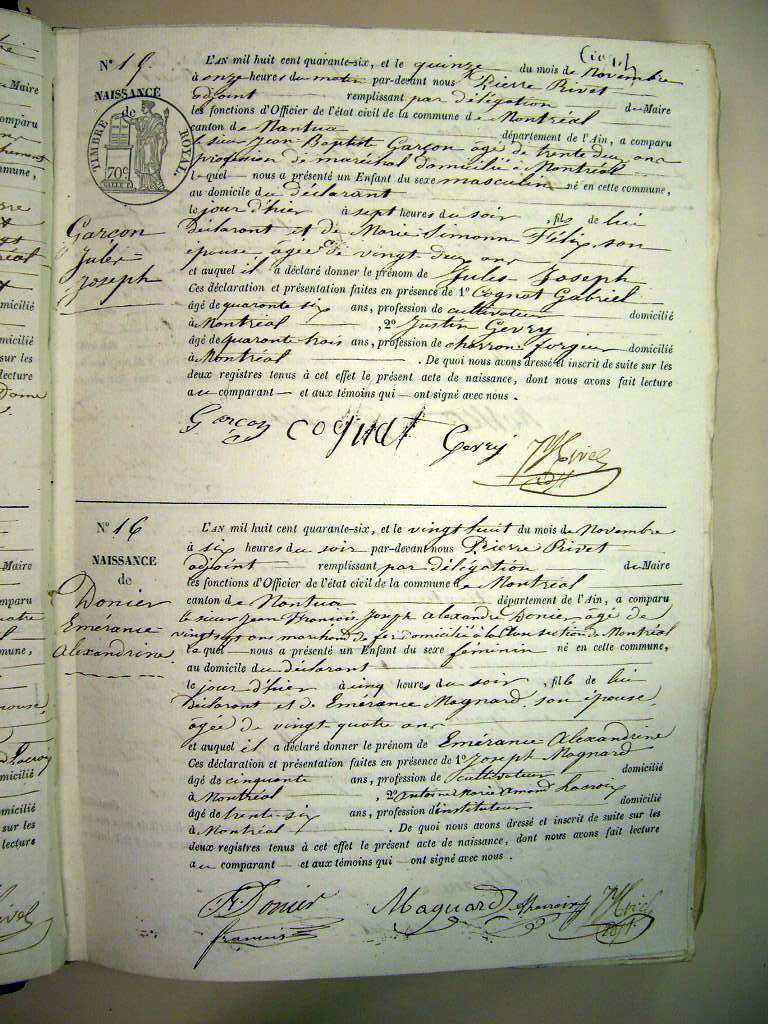 Maire
comparu
mmune,
micilié
omicilié
sur les
lecture
N° 15
NAISSANCE
de
TIMBRE ROYAL
70c
Garçon
Jules
Joseph
L'AN mil huit cent quarante-six, et le quinze du mois de Novembre
à onze heures du matin par-devant nous Pierre Rivet
adjoint remplissant par délégation du Maire
les fonctions d'Officier de l'état civil de la commune de Montréal
canton de Nantua département de l'Ain, a comparu
le sieur Jean Baptist Garçon âgé de trente deux ans
profession de maréchal domicilié à Montréal
lequel nous a présenté un Enfant du sexe masculin né en cette commune,
au domicile du déclarant
le jour d'hier à sept heures du soir, fils de lui
Déclarant et de Marie Simonn Félix, son
épouse âgée de vingt deux ans
et auquel il a déclaré donner le prénom de Jules Joseph
Ces déclaration et présentation faites en présence de 1° Cognat Gabriel
âgé de quarante six ans, profession de cultivateur domicilié
à Montréal, 2° Justin Gevry
âgé de quarante trois ans, profession de charron forgeur domicilié
à Montréal. De quoi nous avons dressé et inscrit de suite sur les
deux registres tenus à cet effet le présent acte de naissance, dont nous avons fait lecture
au comparant — et aux témoins qui — ont signé avec nous.
Garçon cognat Gevry Rivet
N° 16
NAISSANCE
de
Donier
Emérance
Alexandrine
L'AN mil huit cent quarante-six, et le vingt huit du mois de Novembre
à six heures du soir par-devant nous Pierre Rivet
adjoint remplissant par délégation du Maire
les fonctions d'Officier de l'état civil de la commune de Montréal
canton de Nantua département de l'Ain, a comparu
le sieur Jean François Joseph Alexandre Donier, âgé de
vingt sept ans marchand de fer domicilié à la Cluse section de Montréal
lequel — nous a présenté un Enfant du sexe feminin né en cette commune,
au domicile du déclarant
le jour d'hier à cinq heures du soir, fille de lui
Déclarant et de Emérance Magnard, son épouse,
âgée de vingt-quatre ans
et auquel il a déclaré donner le prénom de Emérance Alexandrine
Ces déclaration et présentation faites en présence de 1° Joseph Magnard
âgé de cinquante ans, profession de cultivateur domicilié
à Montréal, 2° Antoine Marie Amand
âgé de trente-six ans, profession d'instituteur domicilié
à Montréal. De quoi nous avons dressé et inscrit de suite sur les
deux registres tenus à cet effet le présent acte de naissance, dont nous avons fait lecture
au comparant — et aux témoins qui — ont signé avec nous.
Donier Magnard Rivet
francois